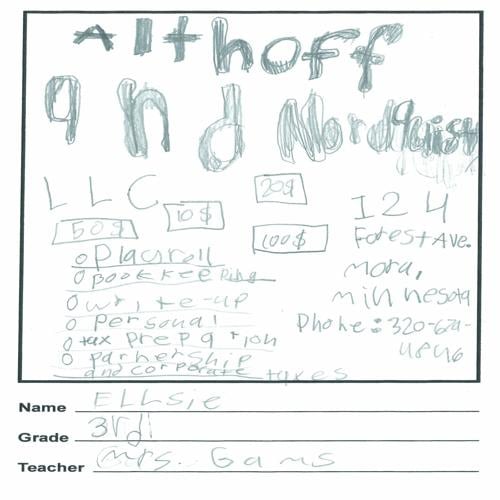 Althoff
and Nordquist
LLC
50$
10$
20$
100$
124
Forest Ave.
Mora,
minnesota
Phone: 320-679-
4846
o Playroll
o Bookkeeping
o write-up
o Personal
o tax prepation
o parnership
and corporate taxes
Name Ellsie
Grade 3rd
Teacher Mrs. Gams